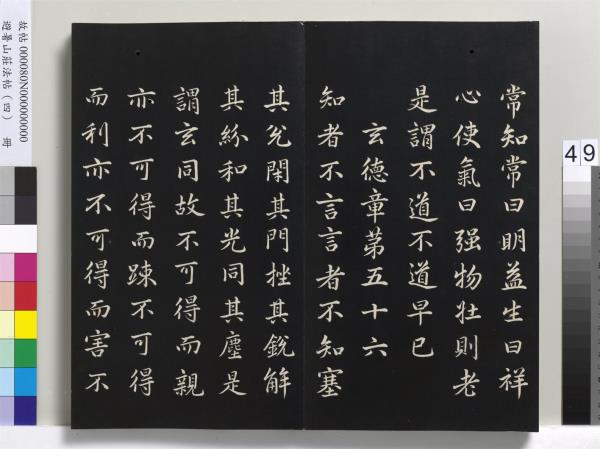 常知常曰明益生曰祥
心使氣曰强物壯則老
是謂不道不道早已
玄德章第五十六
知者不言言者不知塞
其兊閇其門挫其銳解
其紛和其光同其塵是
謂玄同故不可得而親
亦不可得而踈不可得
而利亦不可得而害不
故帖 000080N000000000
避暑山莊法帖(四) 冊
49